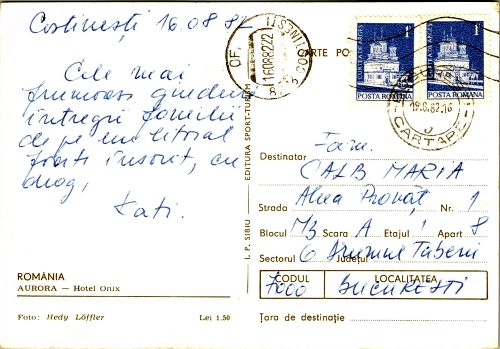 Costinești 16.08 82
Cele mai
frumoase gânduri
întregii familii
de pe un litoral
foarte însorit, cu
drag,
Tati.
ROMÂNIA
AURORA — Hotel Onix
Foto: Hedy Löffler
Lei 1.50
I. P. SIBIU
EDITURA SPORT-TURISM
CARTE PO
COSTINESTI
OF.
160882.22
CURTEA DE ARGEȘ
1L
POSTA ROMANA
CURTEA DE ARGEȘ
1L
POSTA ROMANA
19.8.82.16
CARTARE
Fam.
Destinatar CALB MARIA
Strada Aleea Provăț Nr. 1
Blocul M3 Scara A Etajul 1 Apart 8
Sectorul 6 Județul Drumul Taberii
CODUL LOCALITATEA
7000 BUCUREȘTI
Țara de destinație